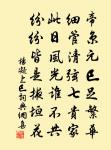 帝京元巳足繁華
細管清弦七貴家
此日風光誰不共
紛紛皆是掖垣花
楊凝上巳詞典網書